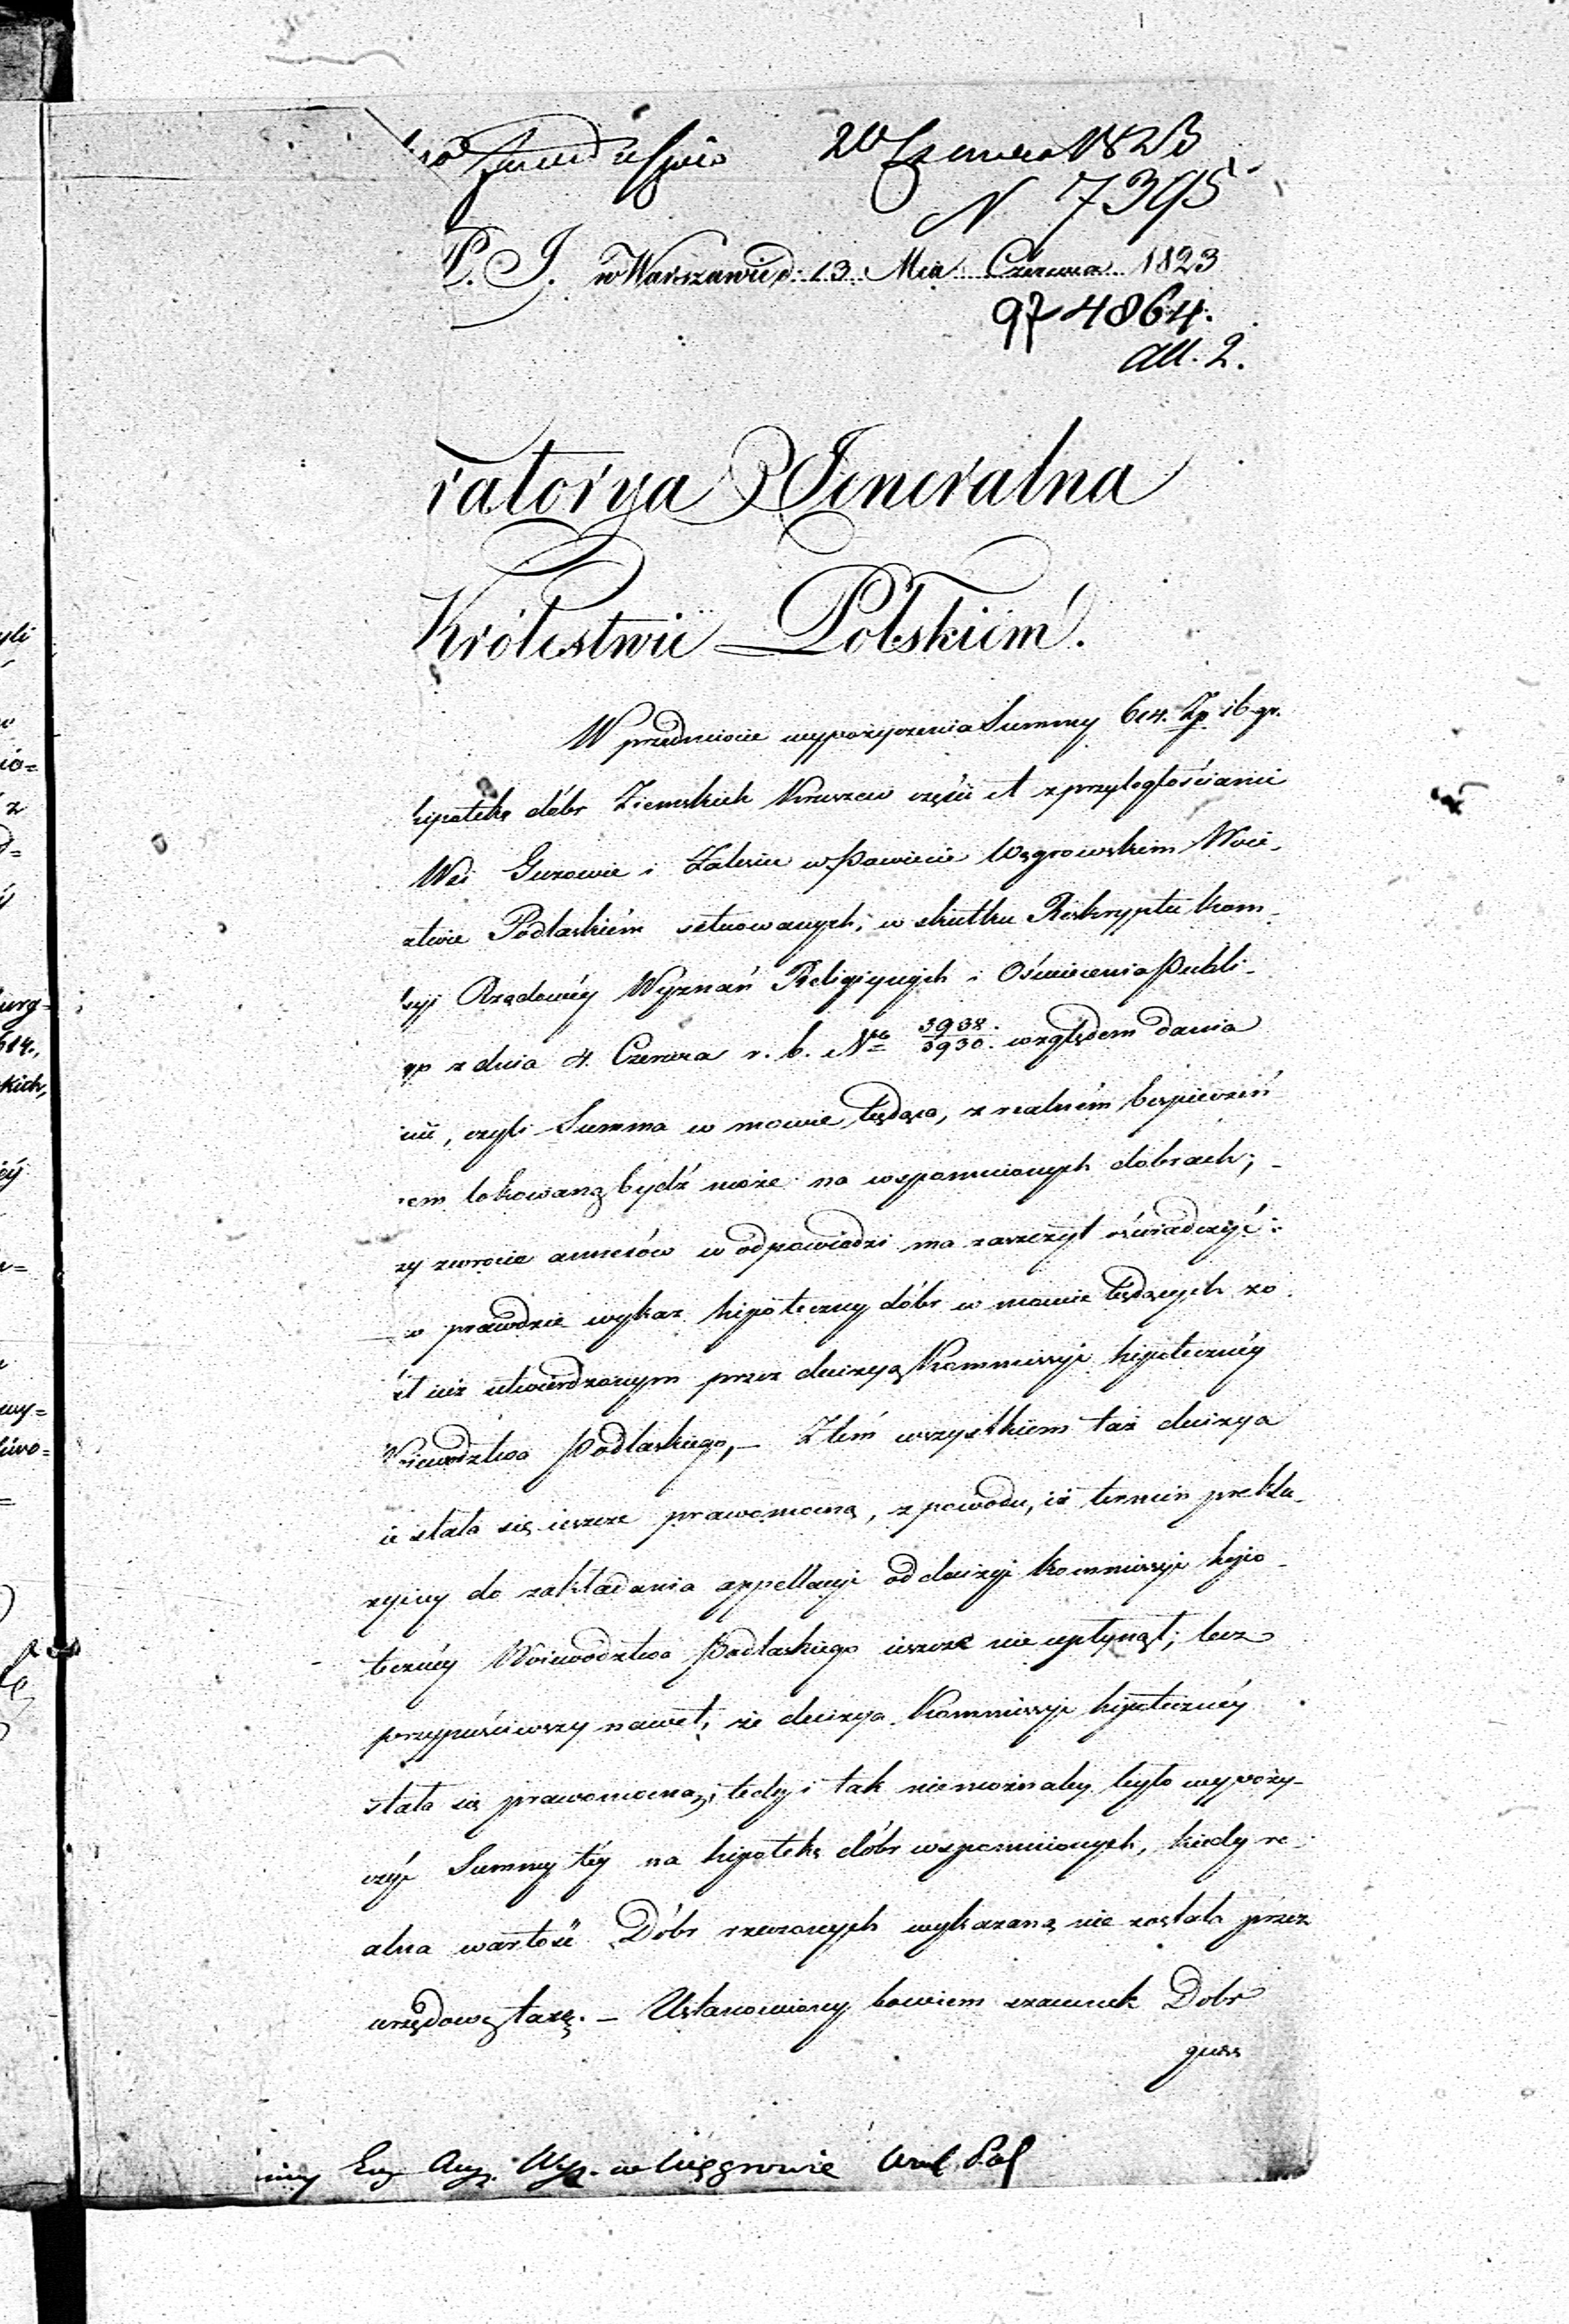 20 Czerwca 1823
N 7395
P. J. w Warszawie d: 13 Mca Czerwca 1823
97 4864.
all. 2.
ratorya Jeneralna
Królestwie Polskiem.
W przedmiocie wypożyczenia Summy 614. Zp 16 gr.
hipotekę dóbr Ziemskich Kruszew części A z przyległościami
Wsi Gurowie i Zalesiu w Powiecie Węgrowskim Woie-
ztwie Podlaskiém sytuowanych, w skutku Reskryptu Kom-
syi Rządowéy Wyznań Religiynych i Oświecenia Publi-
go z dnia 4. Czerwca r. b. Nro 3938./3930. względem dania
nii, czyli Summa w mowie będąca, z realném bespieczeń
em lokowaną bydź może na wspomnionych dobrach; -
zy zwrocie annexów w odpowiedzi ma zaszczyt oświadczyć:
w prawdzie wykaz hipoteczny dóbr w mowie będących zo-
ał iuż utwierdzonym przez decizyą Kommissyi hipotecznéy
Woiewodztwa Podlaskiego, - Ztém wszystkiem taż decizya
ie stała się ieszcze prawomocną, z powodu, iż termin preklu-
zyiny do zakładania appellacyi od decizyi Kommissyi hipo-
tecznéy Woiewodztwa Podlaskiego ieszcze nie upłynął; lecz
przypuściwszy nawet, że decizya Kommissyi hipotecznéy
stała się prawomocną, tedy i tak niemożnaby było wypoży-
czyć Summy téy na hipotekę dóbr wspomnionych, kiedy re-
alna wartość Dóbr rzeczonych wykazaną nie została przez
urzędową taxę. - Ustanowiony bowiem szacunek Dobr
w Węgrowie